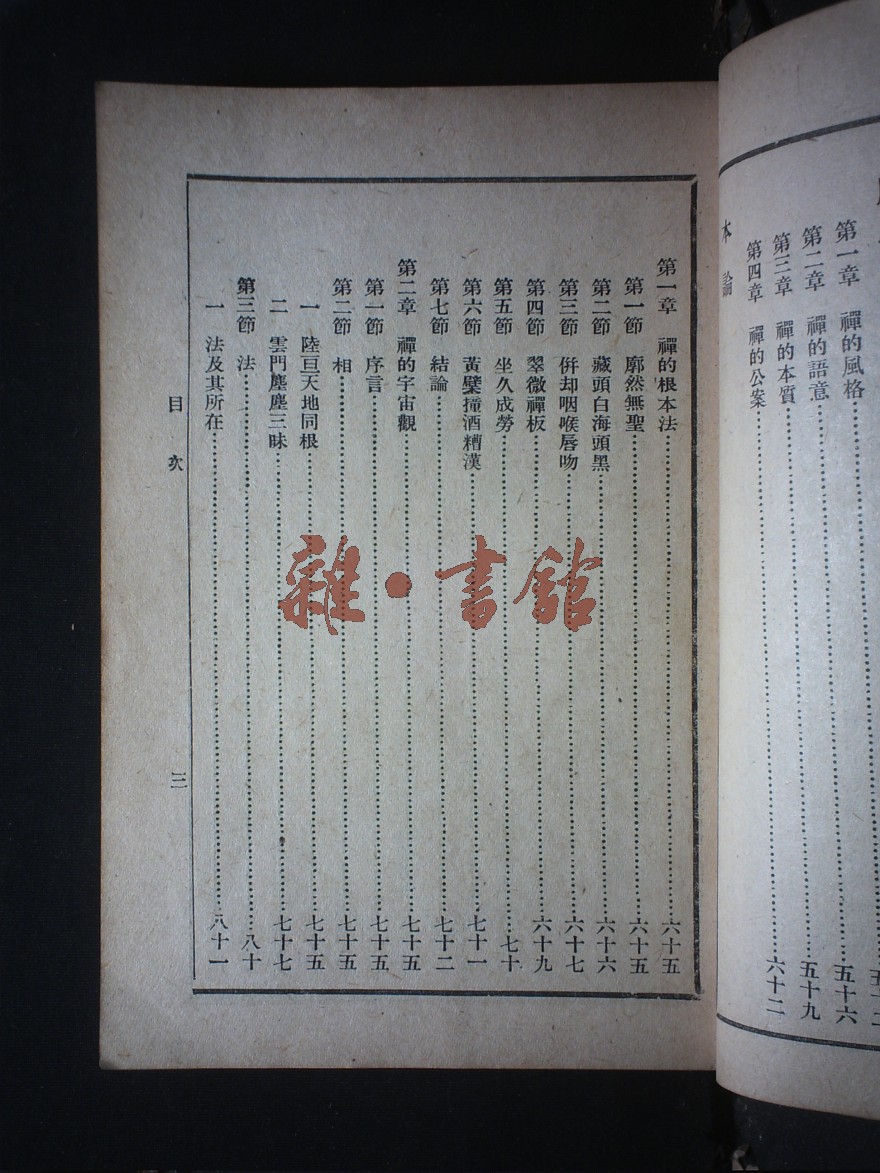 第一章 禪的風格……五十六
第二章 禪的語意……五十九
第三章 禪的本質……六十二
第四章 禪的公案
本論
第一章 禪的根本法……六十五
第一節 廓然無聖……六十五
第二節 藏頭白海頭黑……六十六
第三節 併却咽喉唇吻……六十七
第四節 翠微禪板……六十九
第五節 坐久成勞……七十
第六節 黃檗撞酒糟漢……七十一
第七節 結論……七十二
第二章 禪的宇宙觀……七十五
第一節 序言……七十五
第二節 相……七十五
一 陸亘天地同根……七十五
二 雲門塵塵三昧……七十七
第三節 法……八十
一 法及其所在……八十一
目次
三
雜·書館